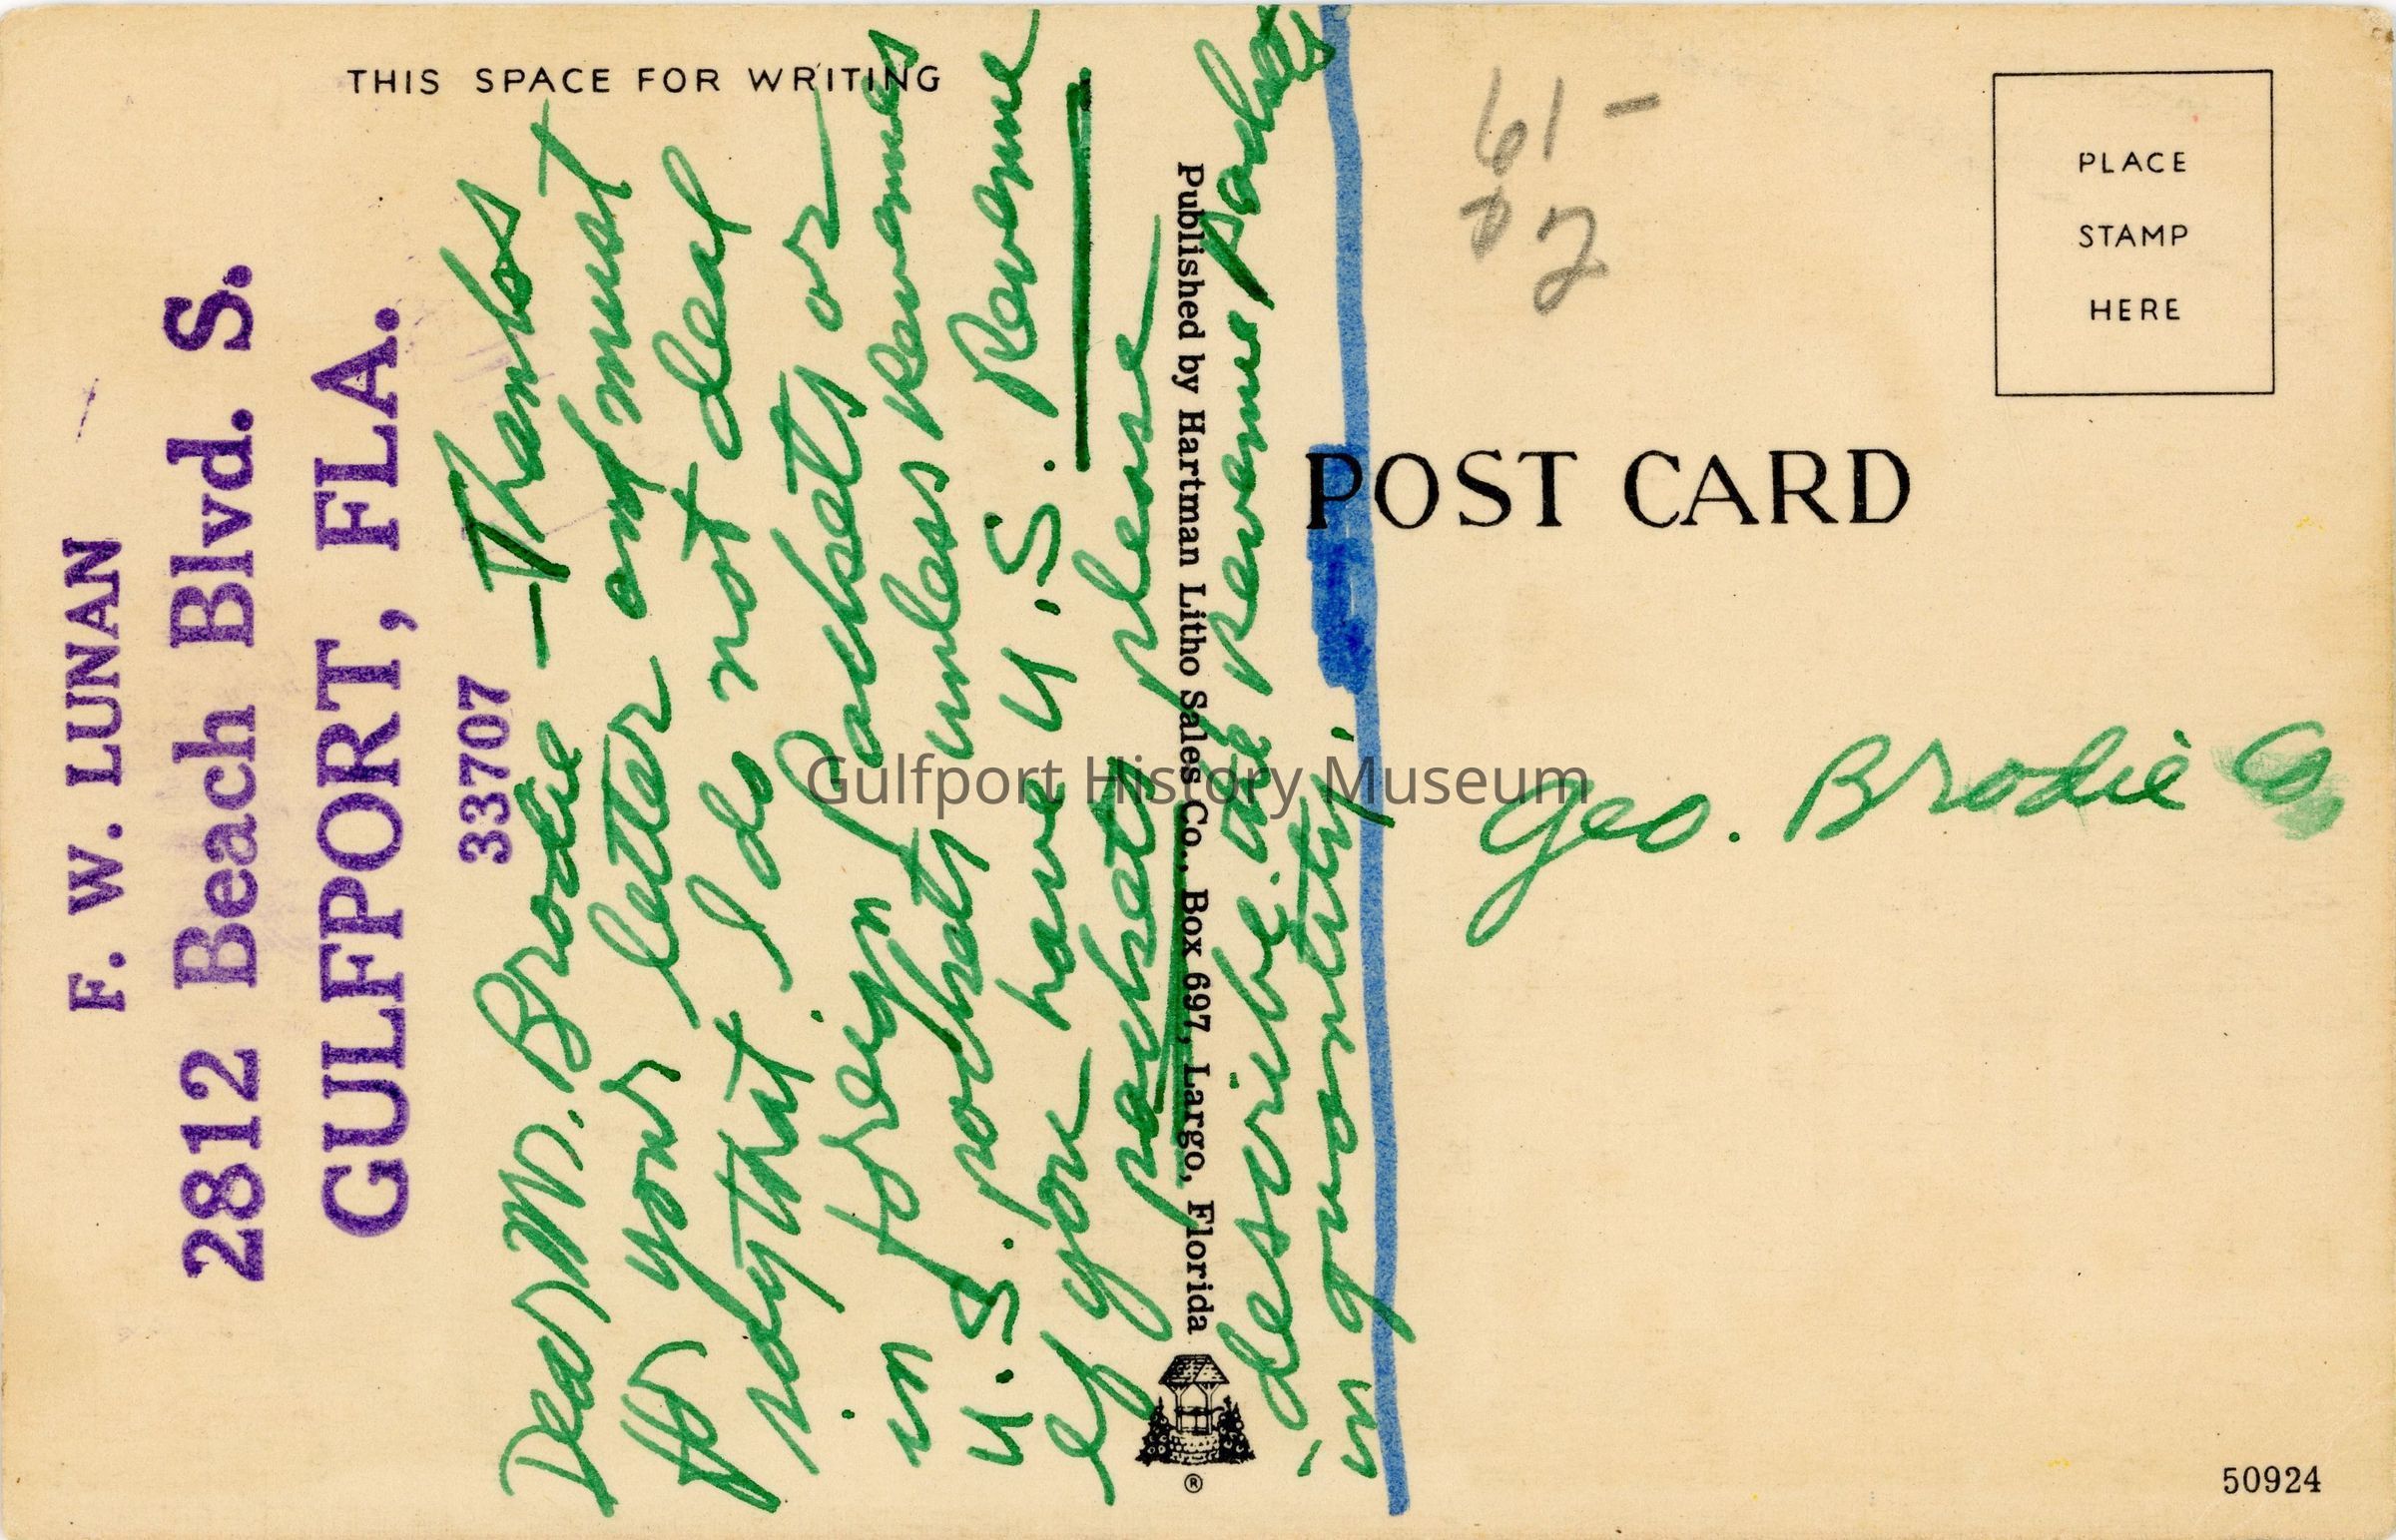 THIS SPACE FOR WRITING
F. W. LUNAN
2812 Beach Blvd. S.
GULFPORT, FLA.
33707
Dear Mr. Brodie — Thanks
for your letter and must
say that I do not deal
in foreign Packets or
U.S. packets unless Revenues
if you have U.S. Revenue
packets please
describe. all Revenue packets
in quantity.
Published by Hartman Litho Sales Co., Box 697, Largo, Florida
®
61 -
2
PLACE
STAMP
HERE
POST CARD
Geo. Brodie Co.
50924
Gulfport History Museum